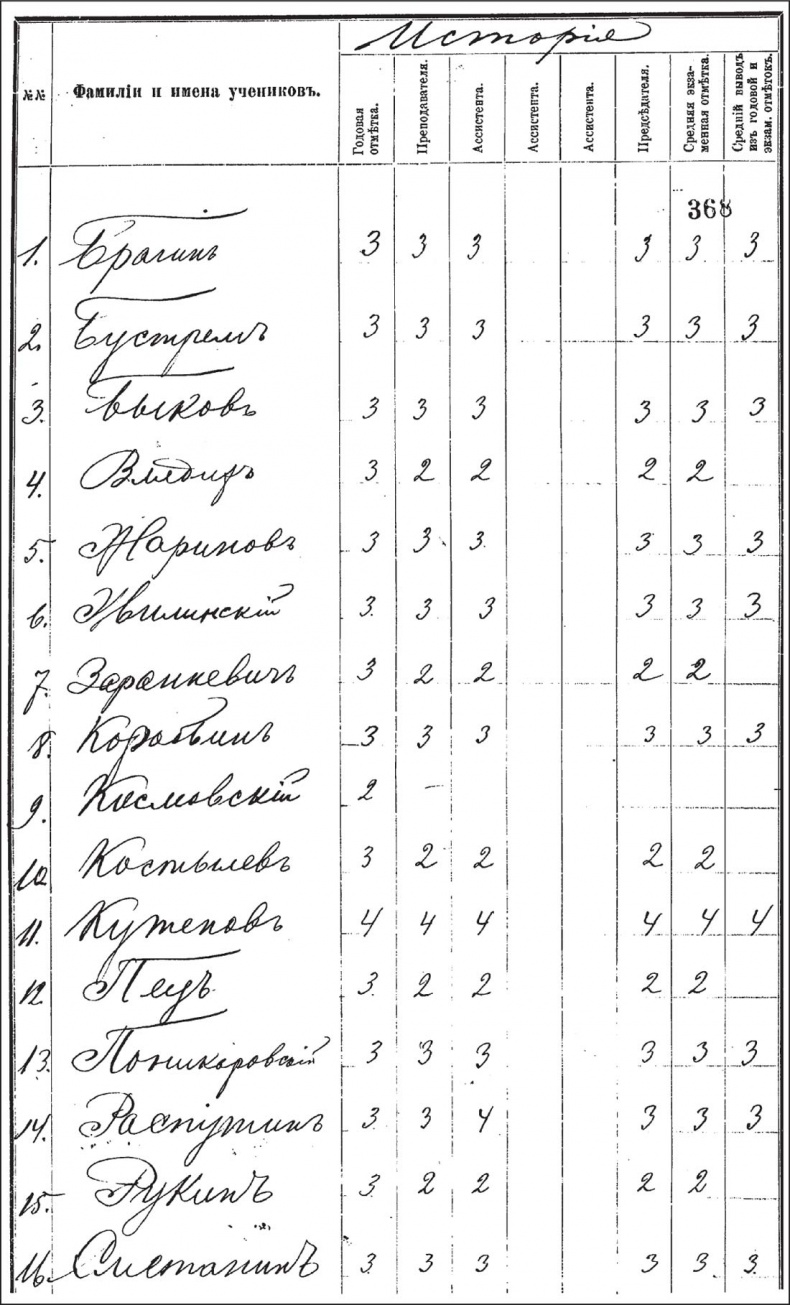 Исторія
№№ Фамиліи и имена учениковъ. Годовая отмѣтка. Преподавателя. Ассистента. Ассистента. Ассистента. Предсѣдателя. Средняя экзаменная отмѣтка. Средній выводъ изъ годовой и экзам. отмѣтокъ.
368
1. Брагинъ 3 3 3 3 3 3
2. Бустремъ 3 3 3 3 3 3
3. Быковъ 3 3 3 3 3 3
4. 3 2 2 2 2
5. Жариновъ 3 3 3 3 3 3
6. 3 3 3 3 3 3
7. Заранкевичъ 3 2 2 2 2
8. Коробьинъ 3 3 3 3 3 3
9. 2 –
10. Костылевъ 3 2 2 2 2
11. Кутеповъ 4 4 4 4 4 4
12. Пецъ 3 2 2 2 2
13. Поникаровскій 3 3 3 3 3 3
14. Распутинъ 3 3 4 3 3 3
15. Рукинъ 3 2 2 2 2
16. Сметанинъ 3 3 3 3 3 3